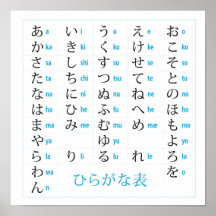 あ a い i う u え e お o
か ka き ki く ku け ke こ ko
さ sa し shi す su せ se そ so
た ta ち chi つ tsu て te と to
な na に ni ぬ nu ね ne の no
は ha ひ hi ふ fu へ he ほ ho
ま ma み mi む mu め me も mo
や ya ゆ yu よ yo
ら ra り li る lu れ le ろ lo
わ wa を o
ん n
ひらがな表